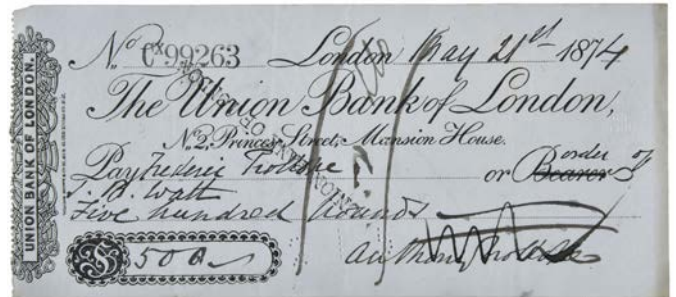 UNION BANK OF LONDON.
No Cx99263 London May 21st 1874
The Union Bank of London,
No 2, Princes Street, Mansion House.
Pay Frederic Trollope or Bearer order of
J. B. Watt
Five hundred Pounds
£500
Anthony Trollope
UNION BANK OF LONDON